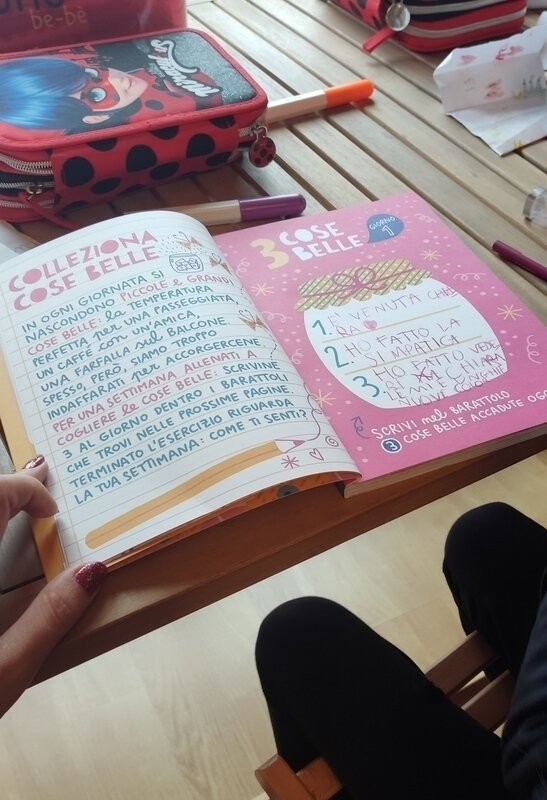 be-bè
COLLEZIONA
COSE BELLE
IN OGNI GIORNATA SI
NASCONDONO PICCOLE e GRANDI
COSE BELLE: la TEMPERATURA
PERFETTA per UNA PASSEGGIATA,
UN CAFFÈ con UN'AMICA,
UNA FARFALLA sul BALCONE.
SPESSO, PERÒ, SIAMO TROPPO
INDAFFARATI per ACCORGERCENE.
PER UNA SETTIMANA ALLENATI A
COGLIERE le COSE BELLE: SCRIVINE
3 AL GIORNO DENTRO I BARATTOLI
CHE TROVI NELLE PROSSIME PAGINE.
TERMINATO L'ESERCIZIO RIGUARDA
LA TUA SETTIMANA: COME TI SENTI?
3 COSE
BELLE
GIORNO
1
1. È VENUTA
2. HO FATTO LA
SIMPATICA
3. HO FATTO VEDE
RE A CHIARA
LE MIE
NUOVE
SCRIVI nel BARATTOLO
3 COSE BELLE ACCADUTE OGGI